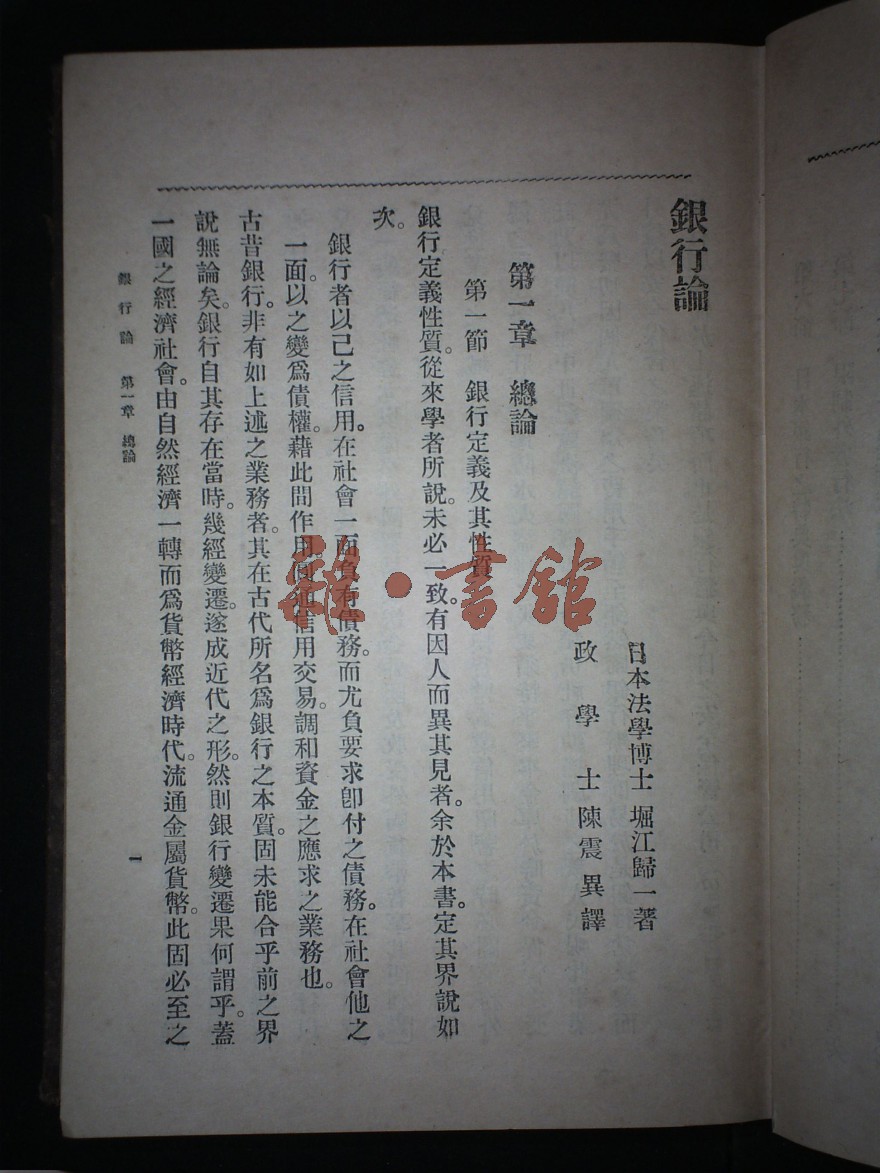 銀行論
日本法學博士 堀江歸一著
政學士陳震異譯
第一章 總論
第一節 銀行定義及其性質
銀行定義性質。從來學者所說。未必一致。有因人而異其見者。余於本書。定其界說如
次。
銀行者以己之信用。在社會一面負有債務。而尤負要求卽付之債務。在社會他之
一面。以之變爲債權。藉此間作用。圓通信用交易。調和資金之應求之業務也。
古昔銀行。非有如上述之業務者。其在古代所名爲銀行之本質。固未能合乎前之界
說無論矣。銀行自其存在當時。幾經變遷。遂成近代之形。然則銀行變遷果何謂乎。蓋
一國之經濟社會。由自然經濟一轉而爲貨幣經濟時代。流通金屬貨幣。此固必至之
銀行論 第一章 總論
一
雜·書館